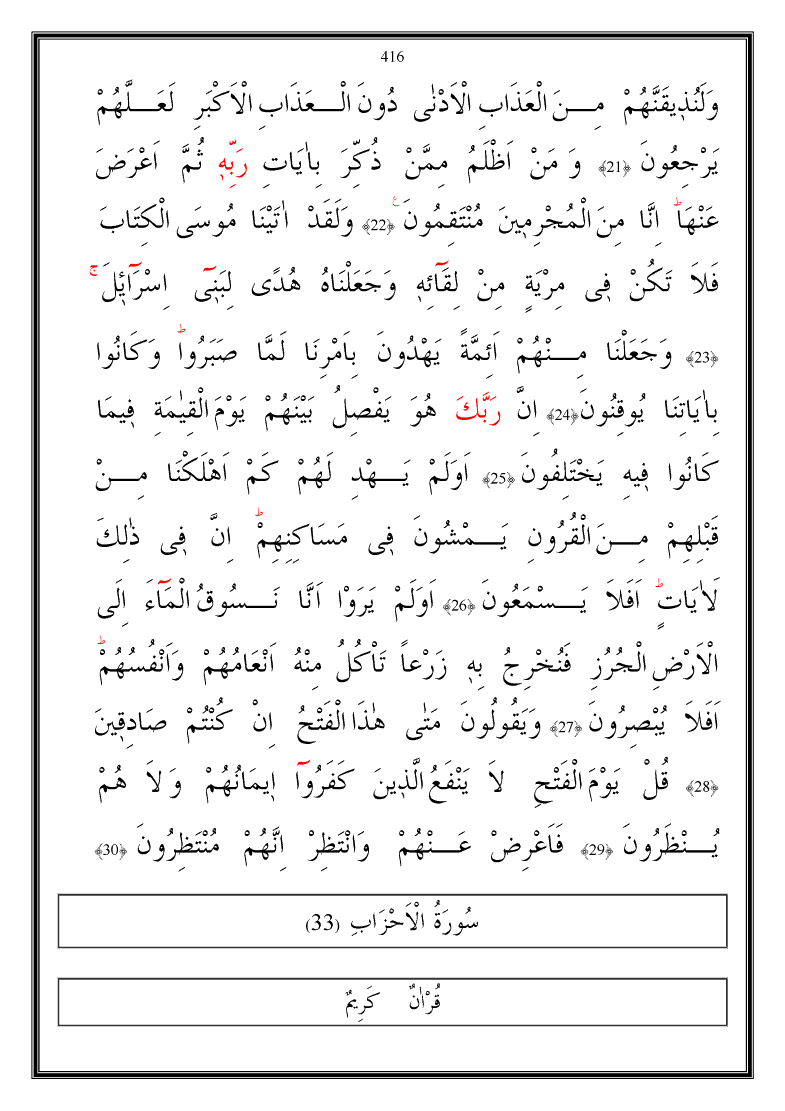 416
وَلَنُذ۪يقَنَّهُمْ مِــنَ الْعَذَابِ الْاَدْنٰى دُونَ الْــعَذَابِ الْاَكْبَرِ لَعَــلَّهُمْ
يَرْجِعُونَ ﴿21﴾ وَ مَنْ اَظْلَمُ مِمَّنْ ذُكِّرَ بِاٰيَاتِ رَبِّه۪ ثُمَّ اَعْرَضَ
عَنْهَاۜ اِنَّا مِنَ الْمُجْرِم۪ينَ مُنْتَقِمُونَ۟ ﴿22﴾ وَلَقَدْ اٰتَيْنَا مُوسَى الْكِتَابَ
فَلَا تَكُنْ ف۪ى مِرْيَةٍ مِنْ لِقَٓائِه۪ وَجَعَلْنَاهُ هُدًى لِبَن۪ٓى اِسْرَٓاء۪يلَۚ
﴿23﴾ وَجَعَلْنَا مِــنْهُمْ اَئِمَّةً يَهْدُونَ بِاَمْرِنَا لَمَّا صَبَرُواۜ وَكَانُوا
بِاٰيَاتِنَا يُوقِنُونَ ﴿24﴾ اِنَّ رَبَّكَ هُوَ يَفْصِلُ بَيْنَهُمْ يَوْمَ الْقِيٰمَةِ ف۪يمَا
كَانُوا ف۪يهِ يَخْتَلِفُونَ ﴿25﴾ اَوَلَمْ يَــهْدِ لَهُمْ كَمْ اَهْلَكْنَا مِــنْ
قَبْلِهِمْ مِــنَ الْقُرُونِ يَــمْشُونَ ف۪ى مَسَاكِنِهِمْۜ اِنَّ ف۪ى ذٰلِكَ
لَاٰيَاتٍۜ اَفَلَا يَــسْمَعُونَ ﴿26﴾ اَوَلَمْ يَرَوْا اَنَّا نَــسُوقُ الْمَٓاءَ اِلَى
الْاَرْضِ الْجُرُزِ فَنُخْرِجُ بِه۪ زَرْعاً تَاْكُلُ مِنْهُ اَنْعَامُهُمْ وَاَنْفُسُهُمْۜ
اَفَلَا يُبْصِرُونَ ﴿27﴾ وَيَقُولُونَ مَتٰى هٰذَا الْفَتْحُ اِنْ كُنْتُمْ صَادِق۪ينَ
﴿28﴾ قُلْ يَوْمَ الْفَتْحِ لَا يَنْفَعُ الَّذ۪ينَ كَفَرُٓوا ا۪يمَانُهُمْ وَ لَا هُمْ
يُــنْظَرُونَ ﴿29﴾ فَاَعْرِضْ عَــنْهُمْ وَانْتَظِرْ اِنَّهُمْ مُنْتَظِرُونَ ﴿30﴾
سُورَةُ الْاَحْزَابِ (33)
قُرْاٰنٌ كَرِيمٌ